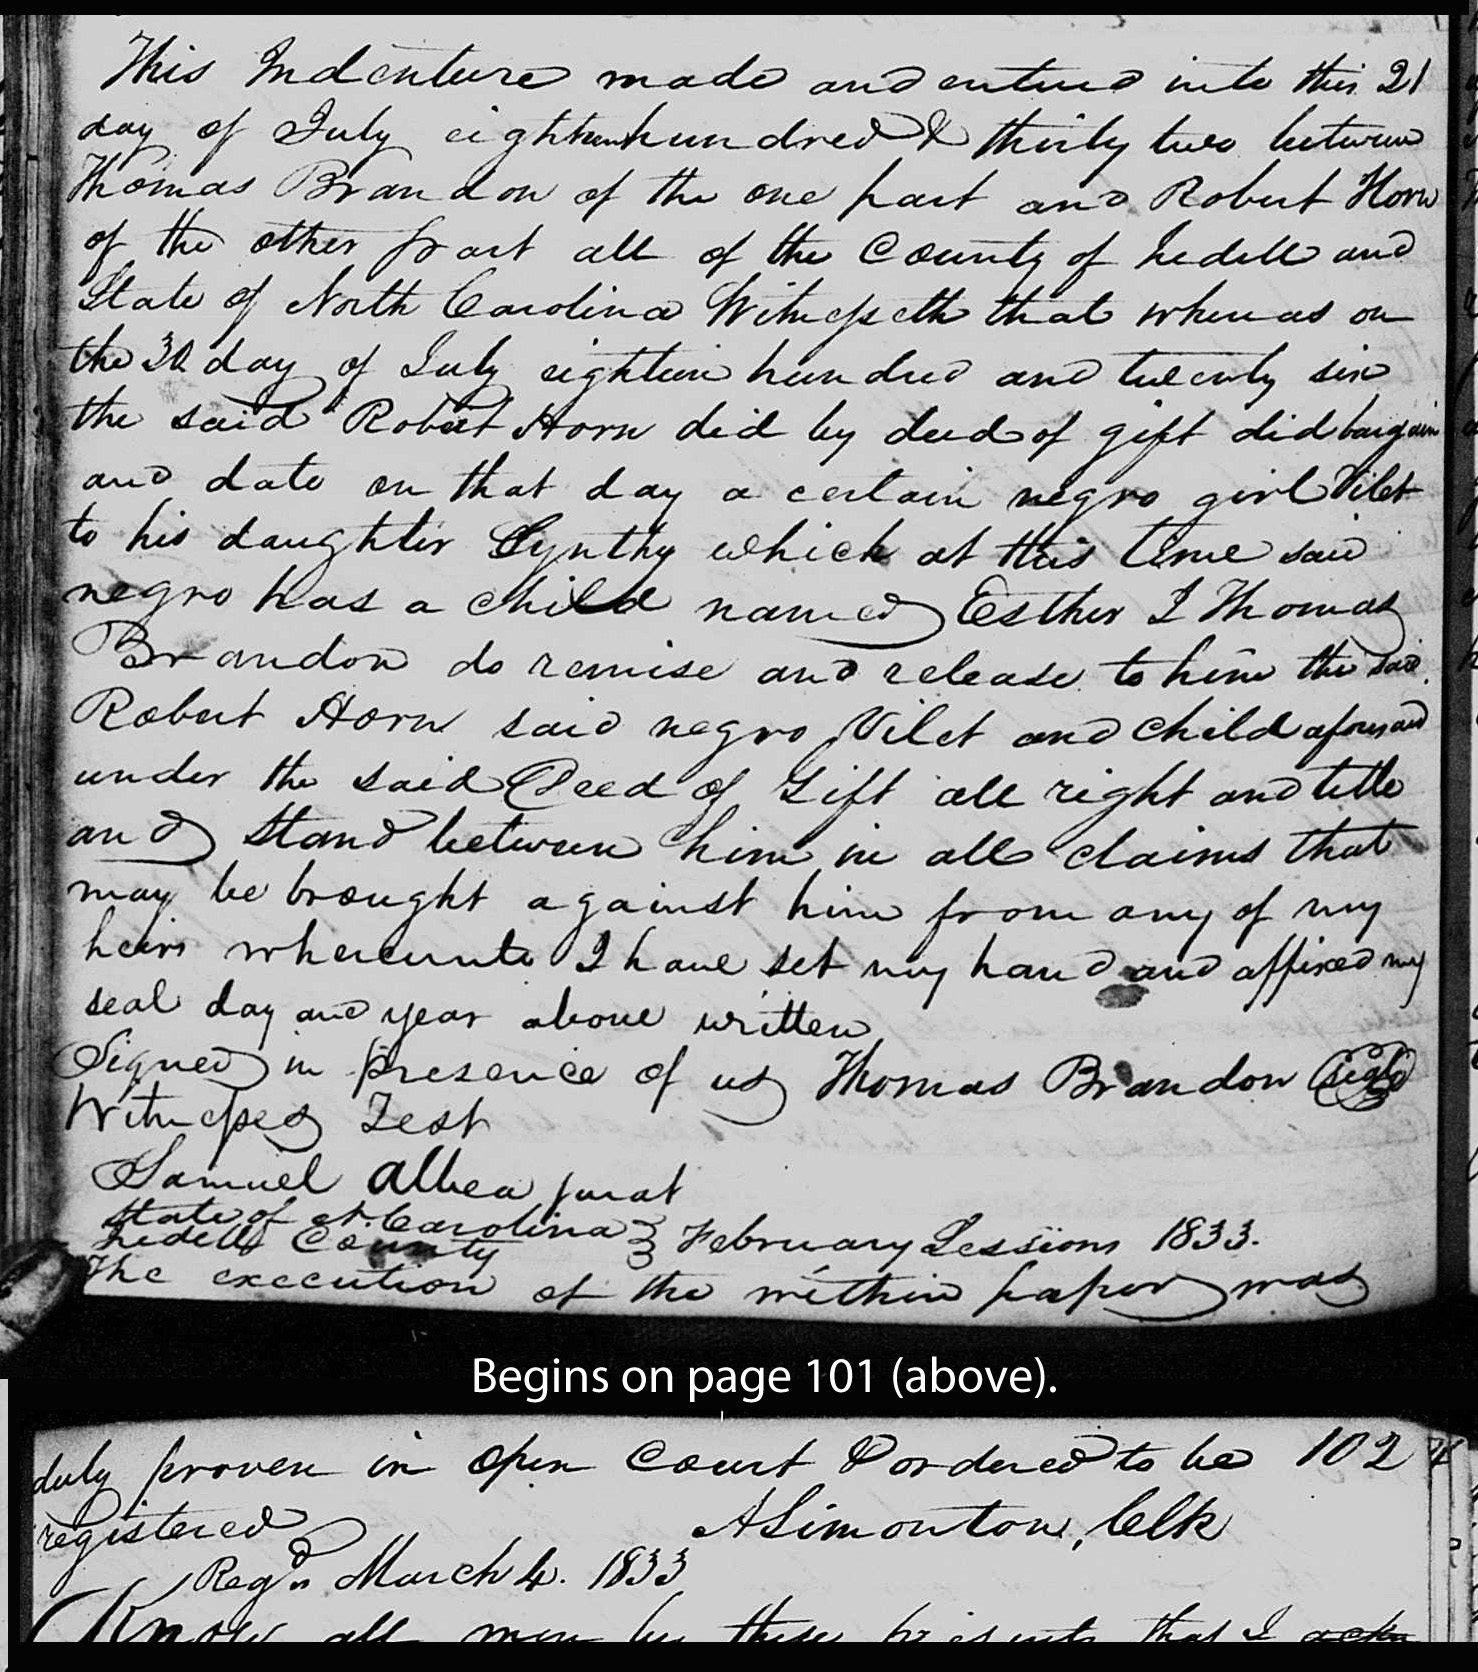 This Indenture made and entered into this 21
day of July eighteen hundred & thirty two between
Thomas Brandon of the one part and Robert Horn
of the other part all of the County of Iredell and
State of North Carolina Witnesseth that whereas on
the 30 day of July eighteen hundred and twenty six
the said Robert Horn did by deed of gift did bargain
and date on that day a certain negro girl Vilet
to his daughter Cynthy which at this time said
negro has a child named Esther I Thomas
Brandon do remise and release to him the said
Robert Horn said negro Vilet and child aforesaid
under the said Deed of Gift all right and title
and stand between him in all claims that
may be brought against him from any of my
heirs whereunto I have set my hand and affixed my
seal day and year above written
Signed in presence of us Thomas Brandon seal
Witnesses Test
Samuel Albea jurat
State of N. Carolina
Iredell County February Sessions 1833.
The execution of the within paper was
Begins on page 101 (above).
duly proven in open Court & ordered to be 102
registered A Simonton, Clk
Regd March 4. 1833
Know all men by these presents that I